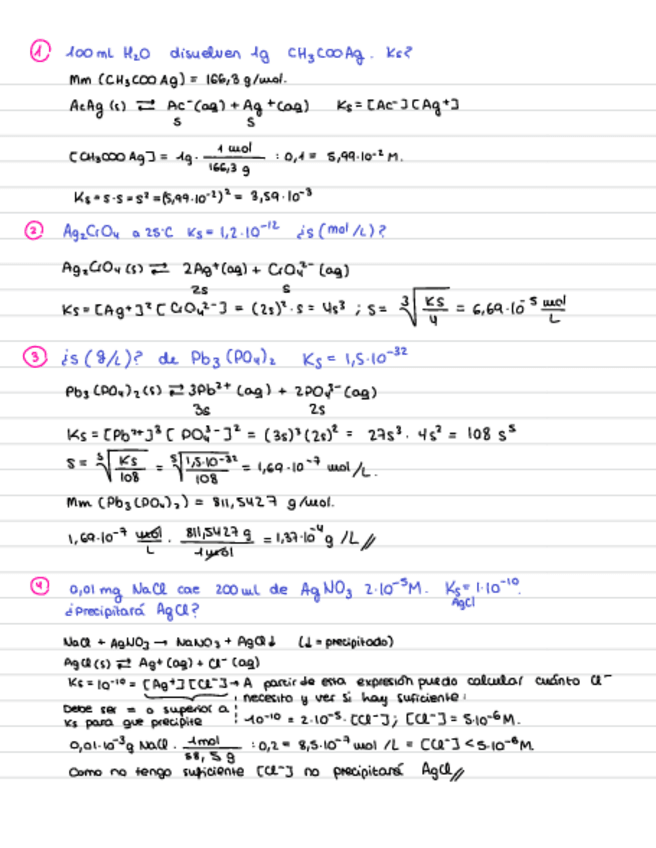 ① 100ml H₂O disuelven 1g CH₃COOAg. Ks?
Mm (CH₃COOAg) = 166,3 g/mol.
AcAg (s) ⇄ Ac⁻(aq) + Ag⁺(aq) Ks = [Ac⁻][Ag⁺]
s s
[CH₃COOAg] = 1g · 1 mol / 166,3 g : 0,1 = 5,99·10⁻² M.
Ks = s·s = s² = (5,99·10⁻²)² = 3,59·10⁻³
② Ag₂CrO₄ a 25ºC Ks = 1,2·10⁻¹² ¿s (mol/L)?
Ag₂CrO₄ (s) ⇄ 2Ag⁺(aq) + CrO₄²⁻ (aq)
2s s
Ks = [Ag⁺]² [CrO₄²⁻] = (2s)²·s = 4s³ ; s = ∛(Ks/4) = 6,69·10⁻⁵ mol/L
③ ¿s (g/L)? de Pb₃(PO₄)₂ Ks = 1,5·10⁻³²
Pb₃(PO₄)₂ (s) ⇄ 3Pb²⁺ (aq) + 2PO₄³⁻ (aq)
3s 2s
Ks = [Pb²⁺]³ [PO₄³⁻]² = (3s)³ (2s)² = 27s³ · 4s² = 108 s⁵
s = ⁵√(Ks/108) = ⁵√(1,5·10⁻³²/108) = 1,69·10⁻⁷ mol/L.
Mm (Pb₃(PO₄)₂) = 811,5427 g/mol.
1,69·10⁻⁷ mol/L · 811,5427 g / 1 mol = 1,37·10⁻⁴ g /L //
④ 0,01 mg NaCl cae 200 ml de AgNO₃ 2·10⁻⁵ M. Ks = 1·10⁻¹⁰.
AgCl
¿Precipitará AgCl?
NaCl + AgNO₃ → NaNO₃ + AgCl↓ (↓ = precipitado)
AgCl (s) ⇄ Ag⁺ (aq) + Cl⁻ (aq)
Ks = 10⁻¹⁰ = [Ag⁺][Cl⁻] → A partir de esta expresión puedo calcular cuánto Cl⁻
necesito y ver si hay suficiente:
Debe ser = o superior a
Ks para que precipite 10⁻¹⁰ = 2·10⁻⁵ · [Cl⁻] ; [Cl⁻] = 5·10⁻⁶ M.
0,01·10⁻³ g NaCl · 1 mol / 58,5 g : 0,2 = 8,5·10⁻⁷ mol /L = [Cl⁻] < 5·10⁻⁶ M
Como no tengo suficiente [Cl⁻] no precipitará AgCl //